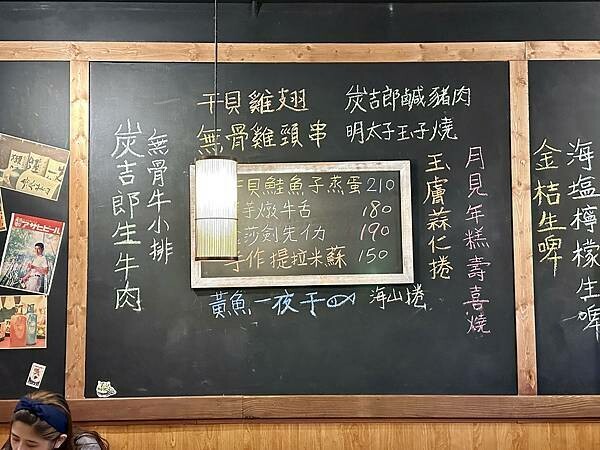 干貝雞翅
炭吉郎鹹豬肉
無骨雞頸串
明太子玉子燒
無骨牛小排
炭吉郎生牛肉
貝鮭魚子蒸蛋210
芋燉牛舌 180
莎劍先 190
手作提拉米蘇 150
黃魚一夜干
海山捲
玉膚蒜仁捲
月見年糕壽喜燒
金桔生啤
海塩檸檬生啤
アサヒビール